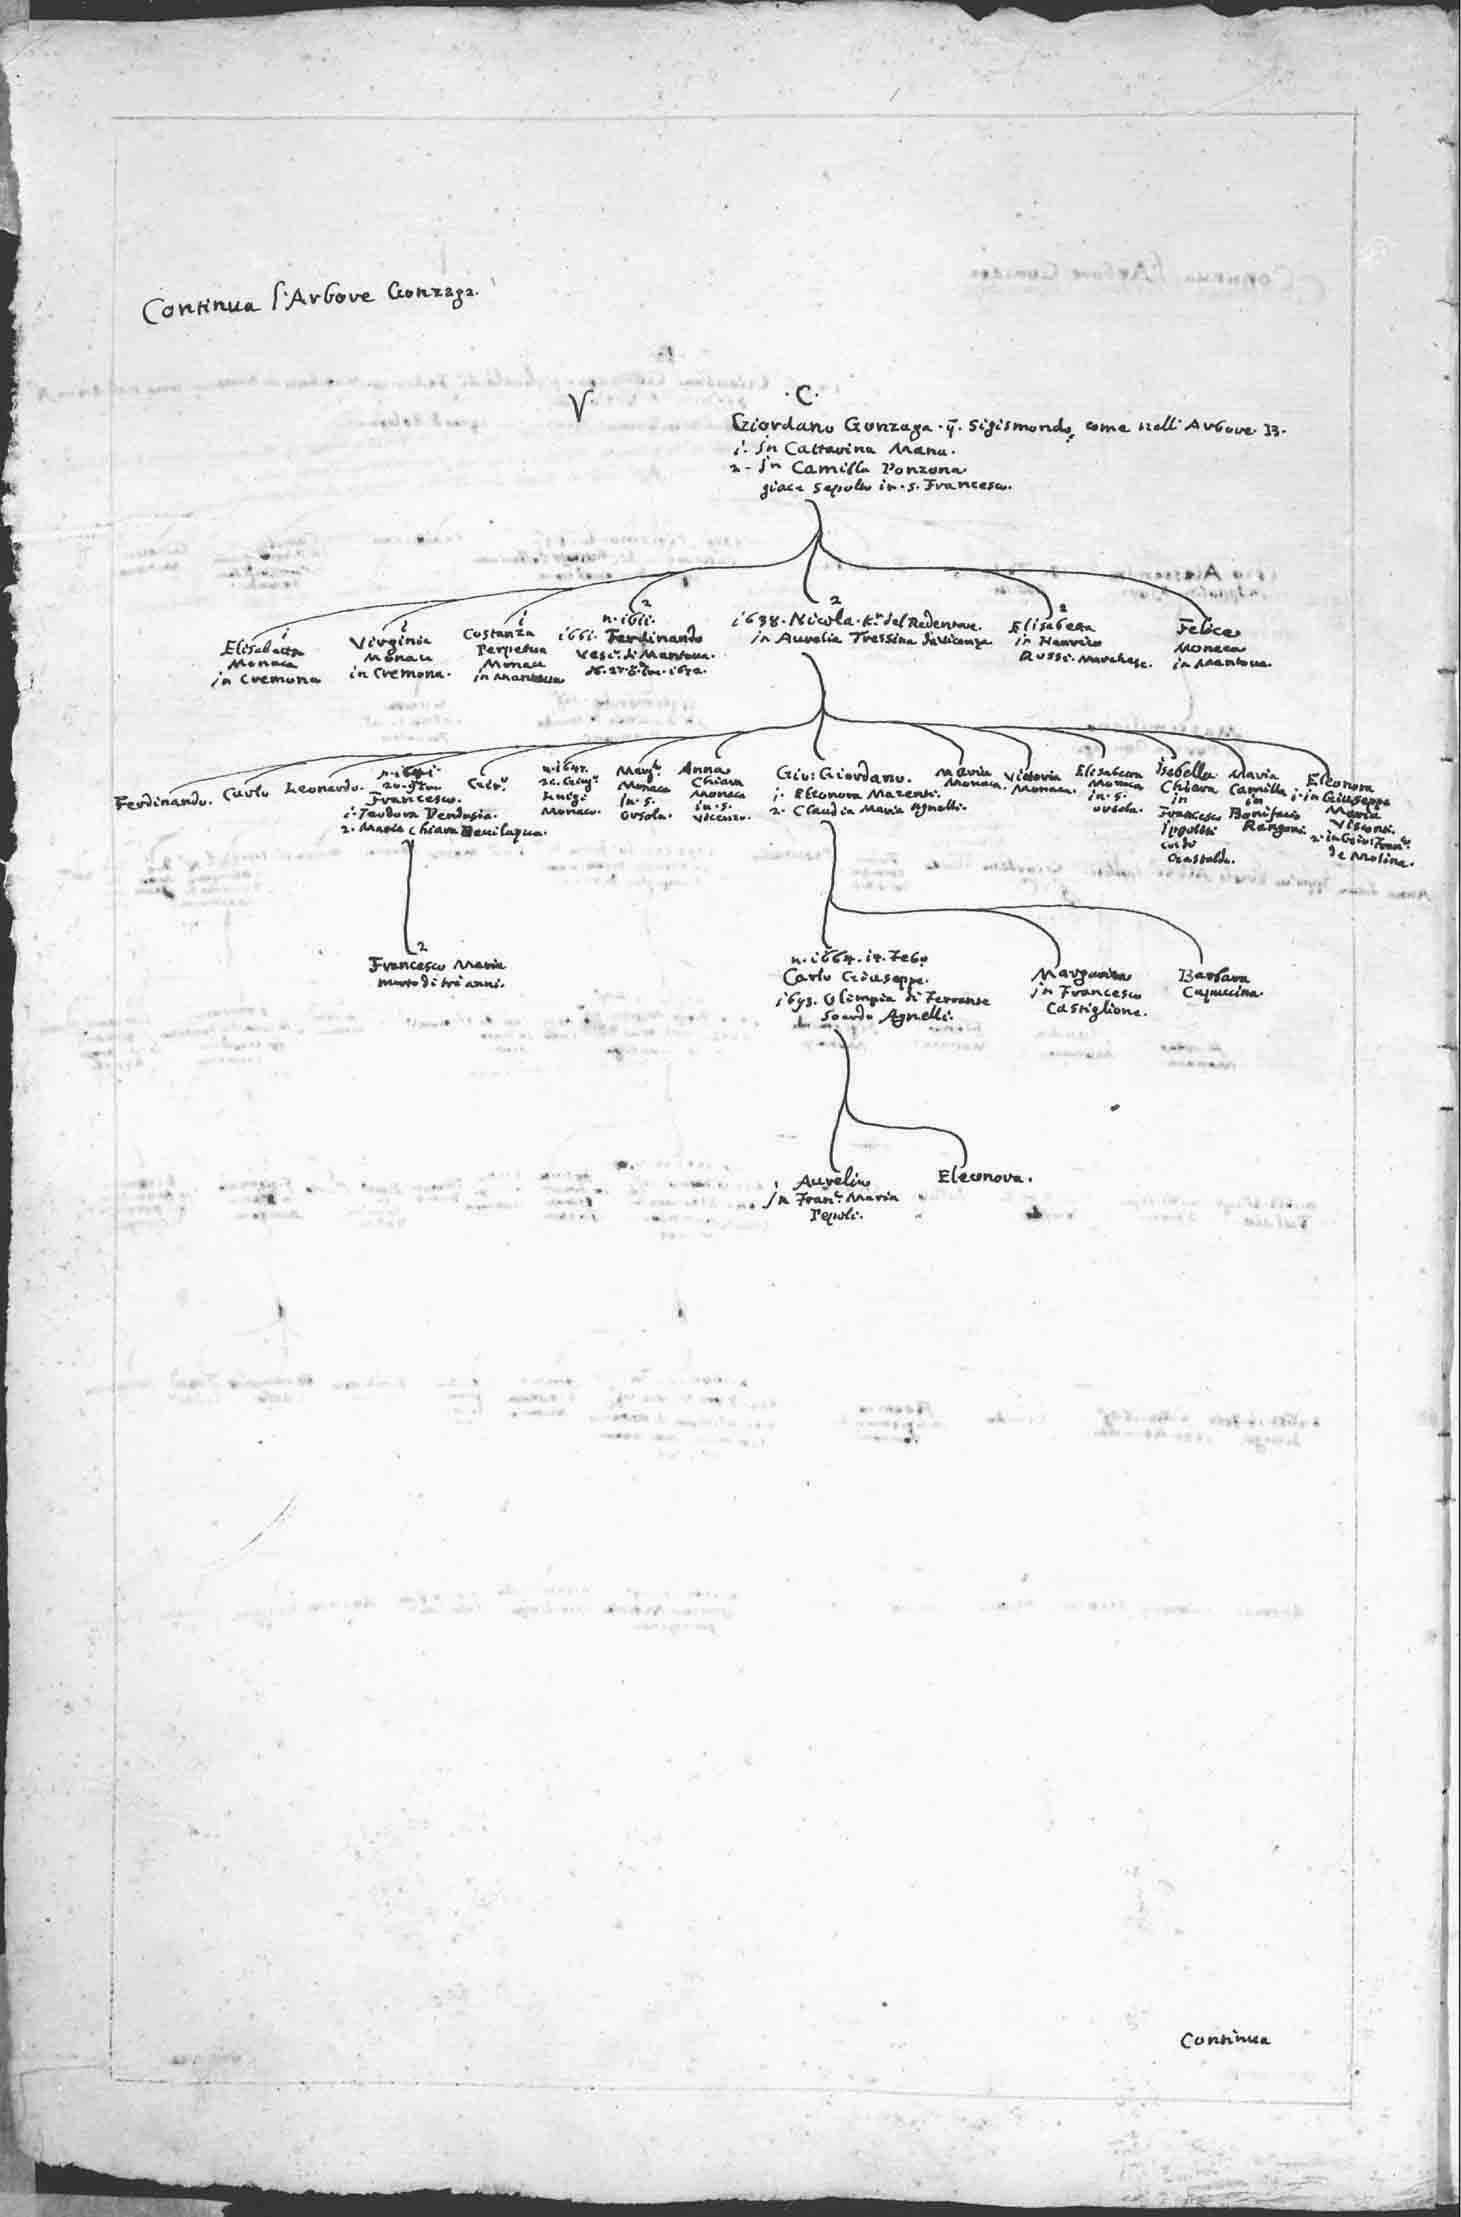 Continua l'Arbore Gonzaga.
V
.C.
Giordano Gonzaga. q. Sigismondo, come nell' Arbore B.
i. in Cattarina Manu.
2. in Camilla Ponzona
giace sepolto in. S. Francesco.
i
Elisabetta
Monaca
in Cremona
i
Virginia
Monaca
in Cremona.
i
Costanza
Perpetua
Monaca
in Mantoua
2
n. i6ii.
i66i. Ferdinando
Vesc.º di Mantoua.
2
i638. Nicola. K.r del Redentore.
in Aurelia Tressina da Vicenza
2
Elisabetta
in
Rossi. Marchese.
Felice
Monaca
in Mantoua.
Ferdinando.
Carlo
Leonardo.
Francesco.
i. Teodora
2. Maria Chiara Beuilaqua.
n. i647.
Luigi
Monaco.
Monaca
in. S.
Orsola.
Anna
Chiara
Monaca
in. S.
Vicenzo.
Gio: Giordano.
i. Eleonora
2. Claudia Maria Agnelli.
Maria
Monaca.
Vittoria
Monaca.
Elisabetta
Monaca
in. S.
Orsola.
Isabella
Chiara
in
Francesco
Ippoliti
Gastoldo.
Maria
Camilla
in
Bonifacio
Rangoni
Eleonora
i. in Giuseppe
Maria
Visconti.
2. in Gio: Fran.co
de Molina.
2
Francesco Maria
morto di trè anni.
n. i664. i4. Feb.o
Carlo Giuseppe.
i693. Olimpia di Ferrante
Soardo Agnelli.
Margarita
in Francesco
Castiglione.
Barbara
Capuccina.
Aurelia
in Fran.co Maria
Pepoli.
Eleonora.
Continua